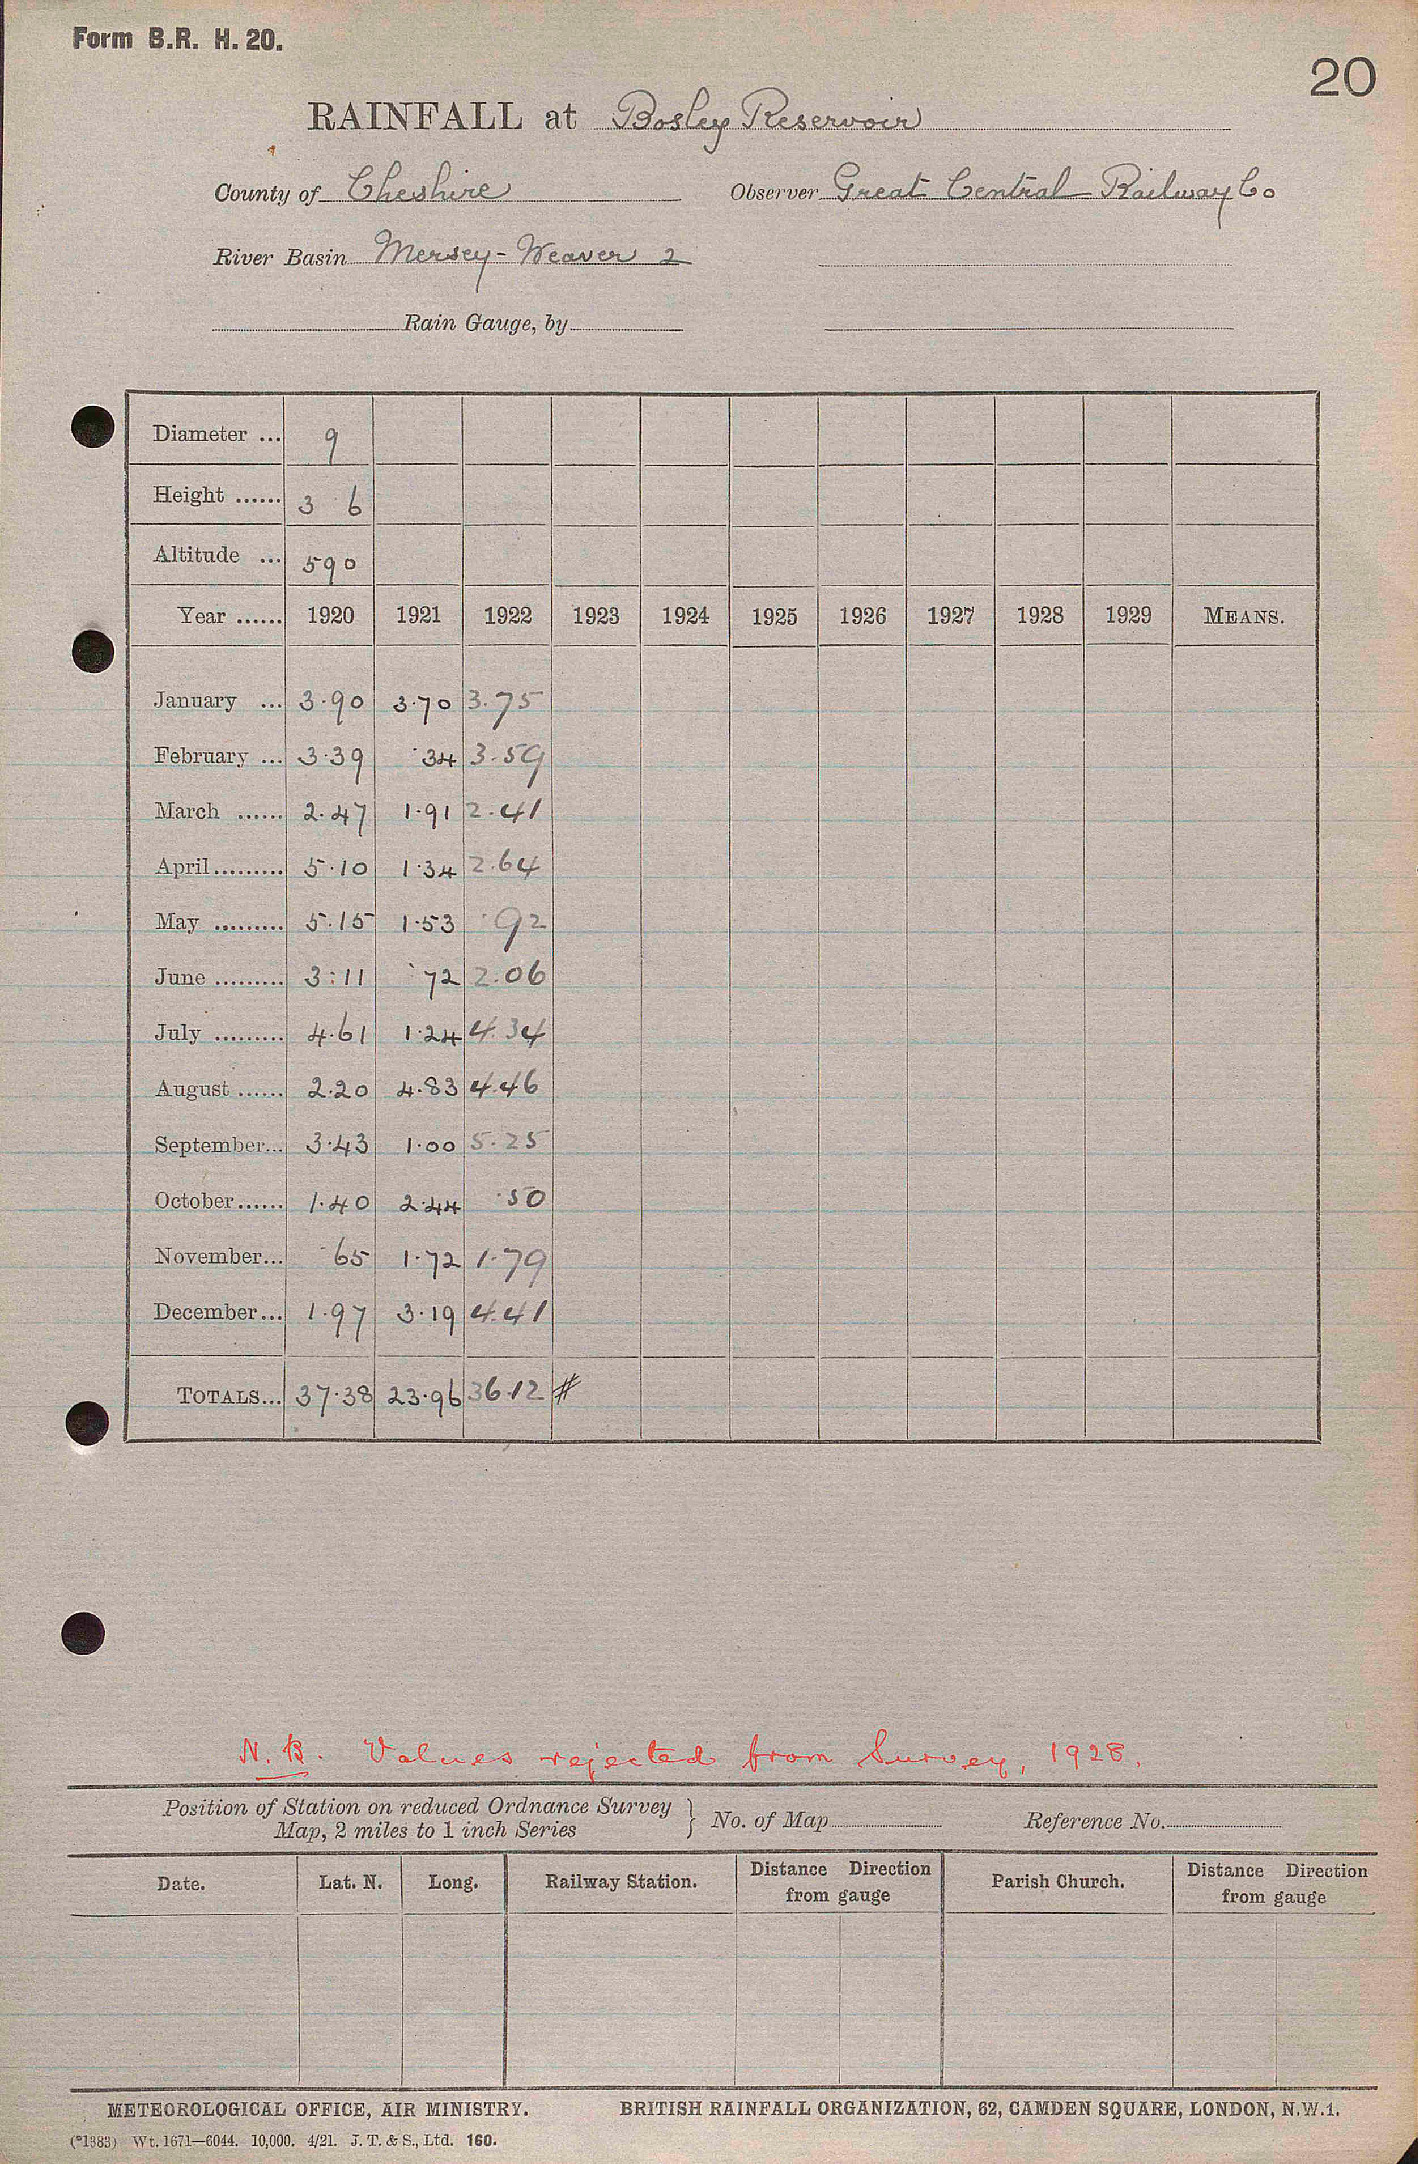 Form B.R. H. 20.
20
RAINFALL at Bosley Reservoir
County of Cheshire Observer Great Central Railway Co
River Basin Mersey-Weaver 2
Rain Gauge, by
Diameter ... 9
Height ...... 3 6
Altitude ... 590
Year ...... 1920 1921 1922 1923 1924 1925 1926 1927 1928 1929 MEANS.
January ... 3.90 3.70 3.75
February ... 3.39 .34 3.59
March ...... 2.47 1.91 2.41
April......... 5.10 1.34 2.64
May ......... 5.15 1.53 .92
June ......... 3.11 .72 2.06
July ......... 4.61 1.24 4.34
August ...... 2.20 4.83 4.46
September... 3.43 1.00 5.25
October...... 1.40 2.44 .50
November... .65 1.72 1.79
December... 1.97 3.19 4.41
TOTALS... 37.38 23.96 36.12 #
N.B. Values rejected from Survey, 1928.
Position of Station on reduced Ordnance Survey
Map, 2 miles to 1 inch Series } No. of Map Reference No.
Date. Lat. N. Long. Railway Station. Distance Direction from gauge Parish Church. Distance Direction from gauge
METEOROLOGICAL OFFICE, AIR MINISTRY. BRITISH RAINFALL ORGANIZATION, 62, CAMDEN SQUARE, LONDON, N.W.1.
(*1383) Wt. 1671—6044. 10,000. 4/21. J. T. & S., Ltd. 160.